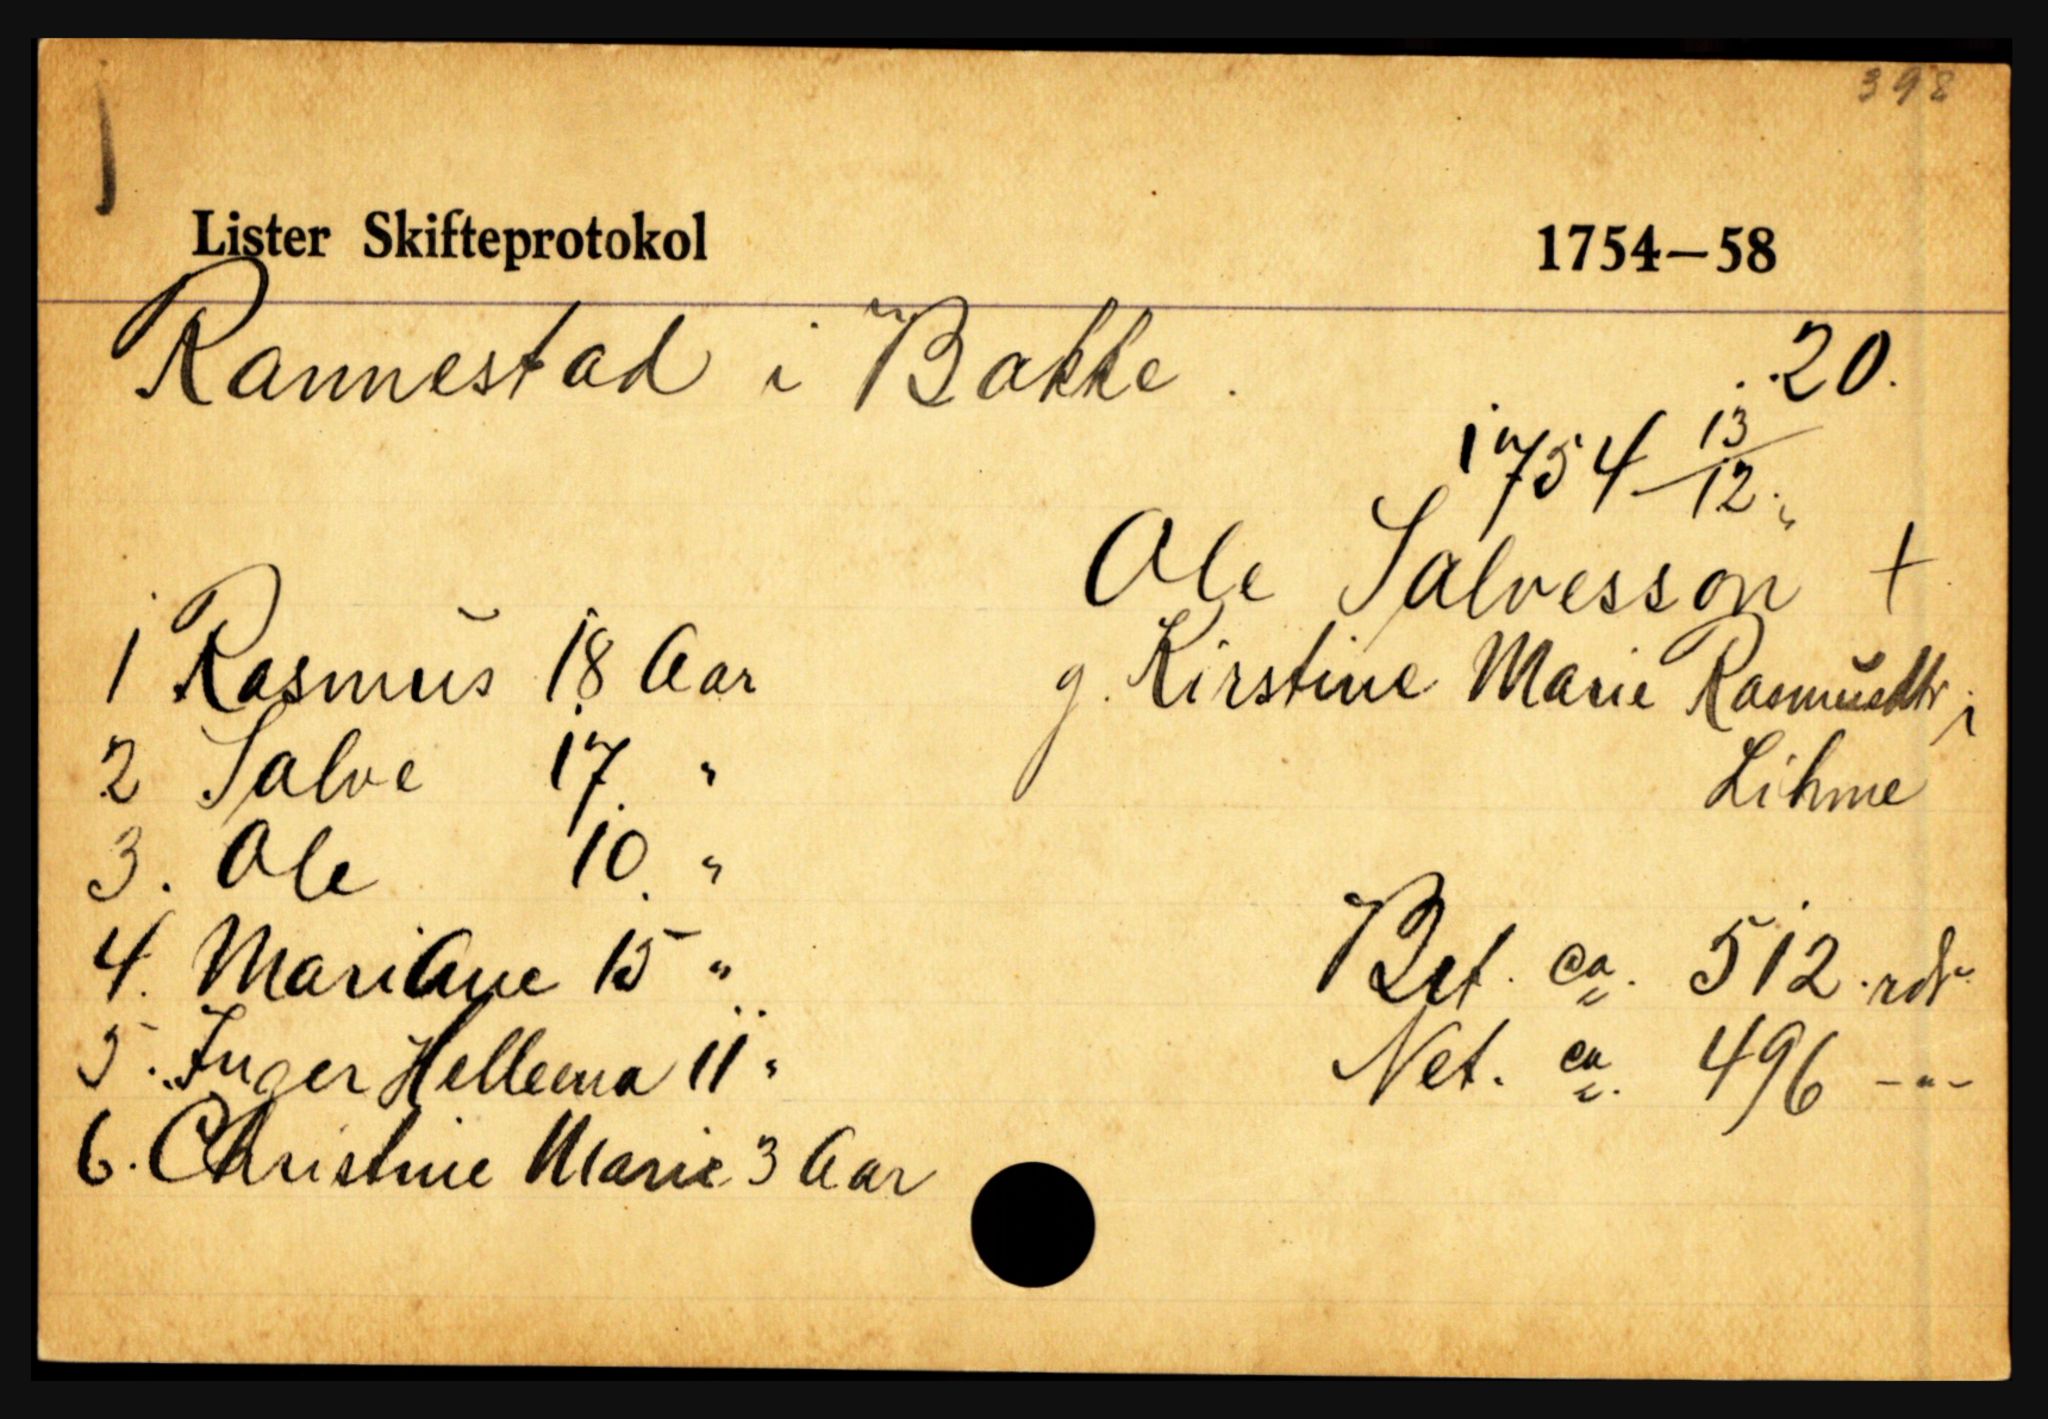 398
Lister Skifteprotokol 1754–58
Rannestad i Bakke . 20.
1754 13/12.
Ole Salvesson +
g. Kirstine Marie Rasmusdtr i
Lihme
1 Rasmus 18 Aar
2 Salve 17 "
3. Ole 10 "
4. Mariane 15 "
5. Inger Helleena 11 "
6. Christine Marie 3 Aar
Brt. ca. 512 rdr
Net. ca. 496 -"-